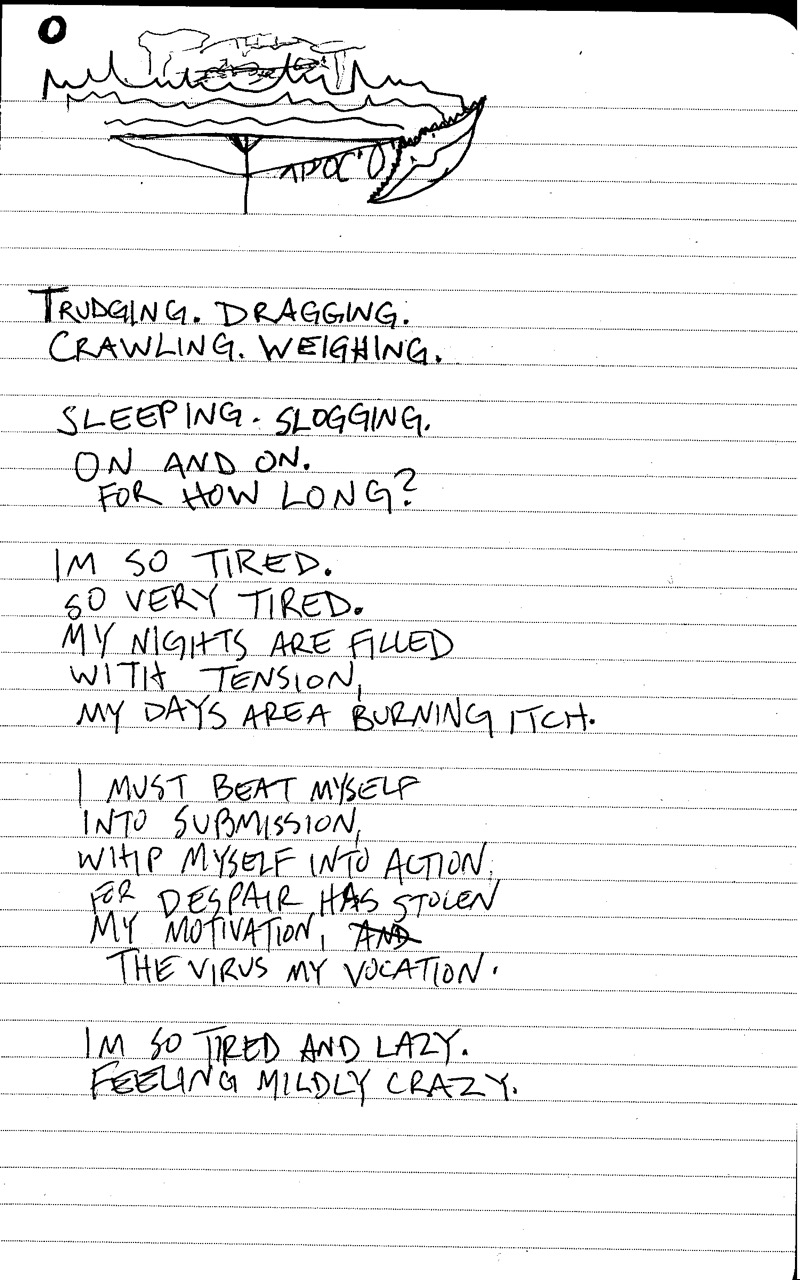 O
TRUDGING. DRAGGING.
CRAWLING. WEIGHING.
SLEEPING. SLOGGING.
ON AND ON.
FOR HOW LONG?
IM SO TIRED.
SO VERY TIRED.
MY NIGHTS ARE FILLED
WITH TENSION,
MY DAYS ARE A BURNING ITCH.
I MUST BEAT MYSELF
INTO SUBMISSION,
WHIP MYSELF INTO ACTION,
FOR DESPAIR HAS STOLEN
MY MOTIVATION, AND
THE VIRUS MY VOCATION.
IM SO TIRED AND LAZY.
FEELING MILDLY CRAZY.